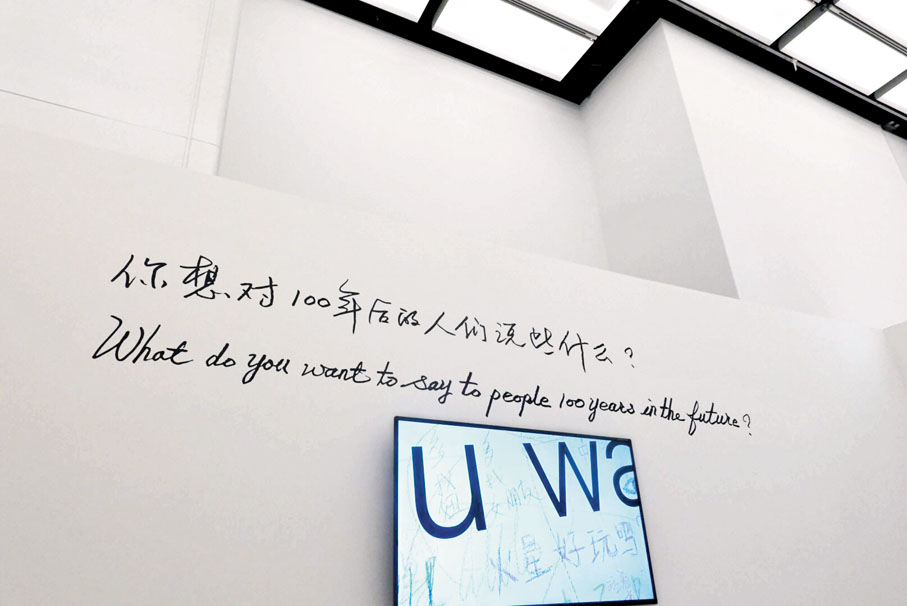 你想对100年后的人们说些什么?
What do you want to say to people 100 years in the future?
u wa
火星好玩吗